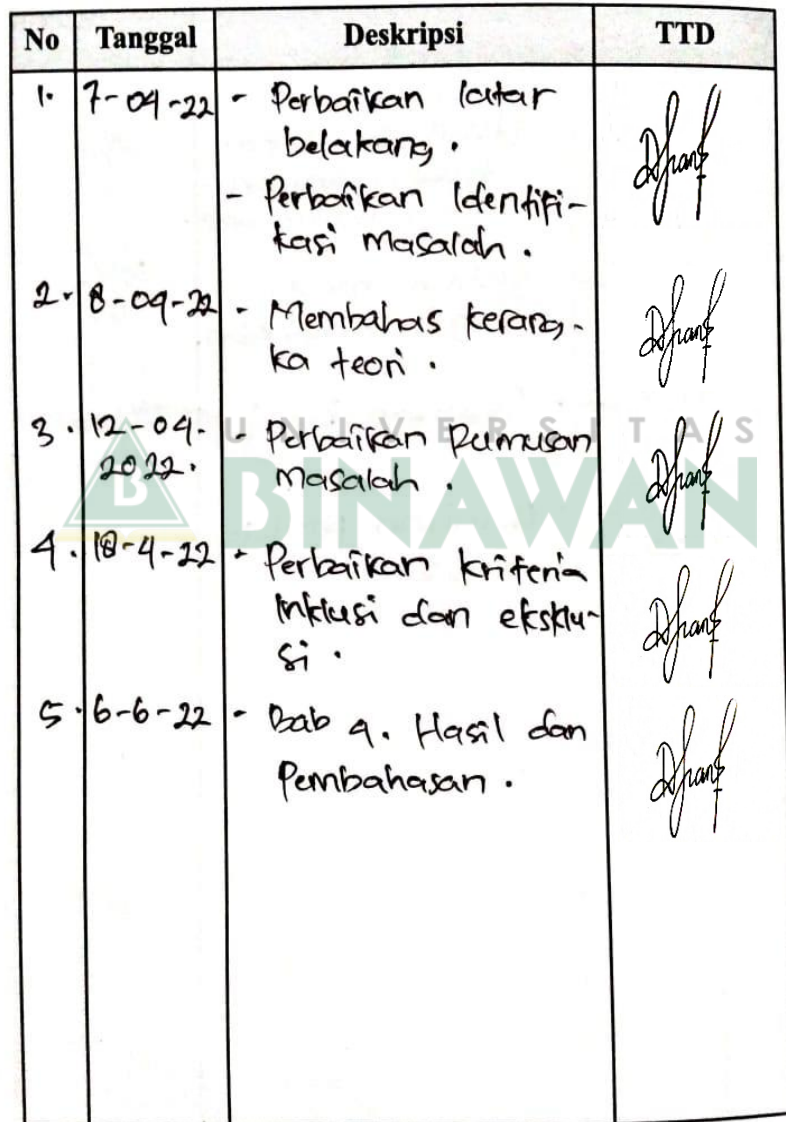 No Tanggal Deskripsi TTD
1. 7-04-22 - Perbaikan latar
belakang.
- Perbaikan Identifi-
kasi masalah.
2. 8-04-22 - Membahas kerang-
ka teori.
3. 12-04- - Perbaikan Rumusan
2022. masalah.
UNIVERSITAS
BINAWAN
4. 18-4-22 - Perbaikan kriteria
Inklusi dan eksklu-
si.
5. 6-6-22 - Bab 4. Hasil dan
Pembahasan.